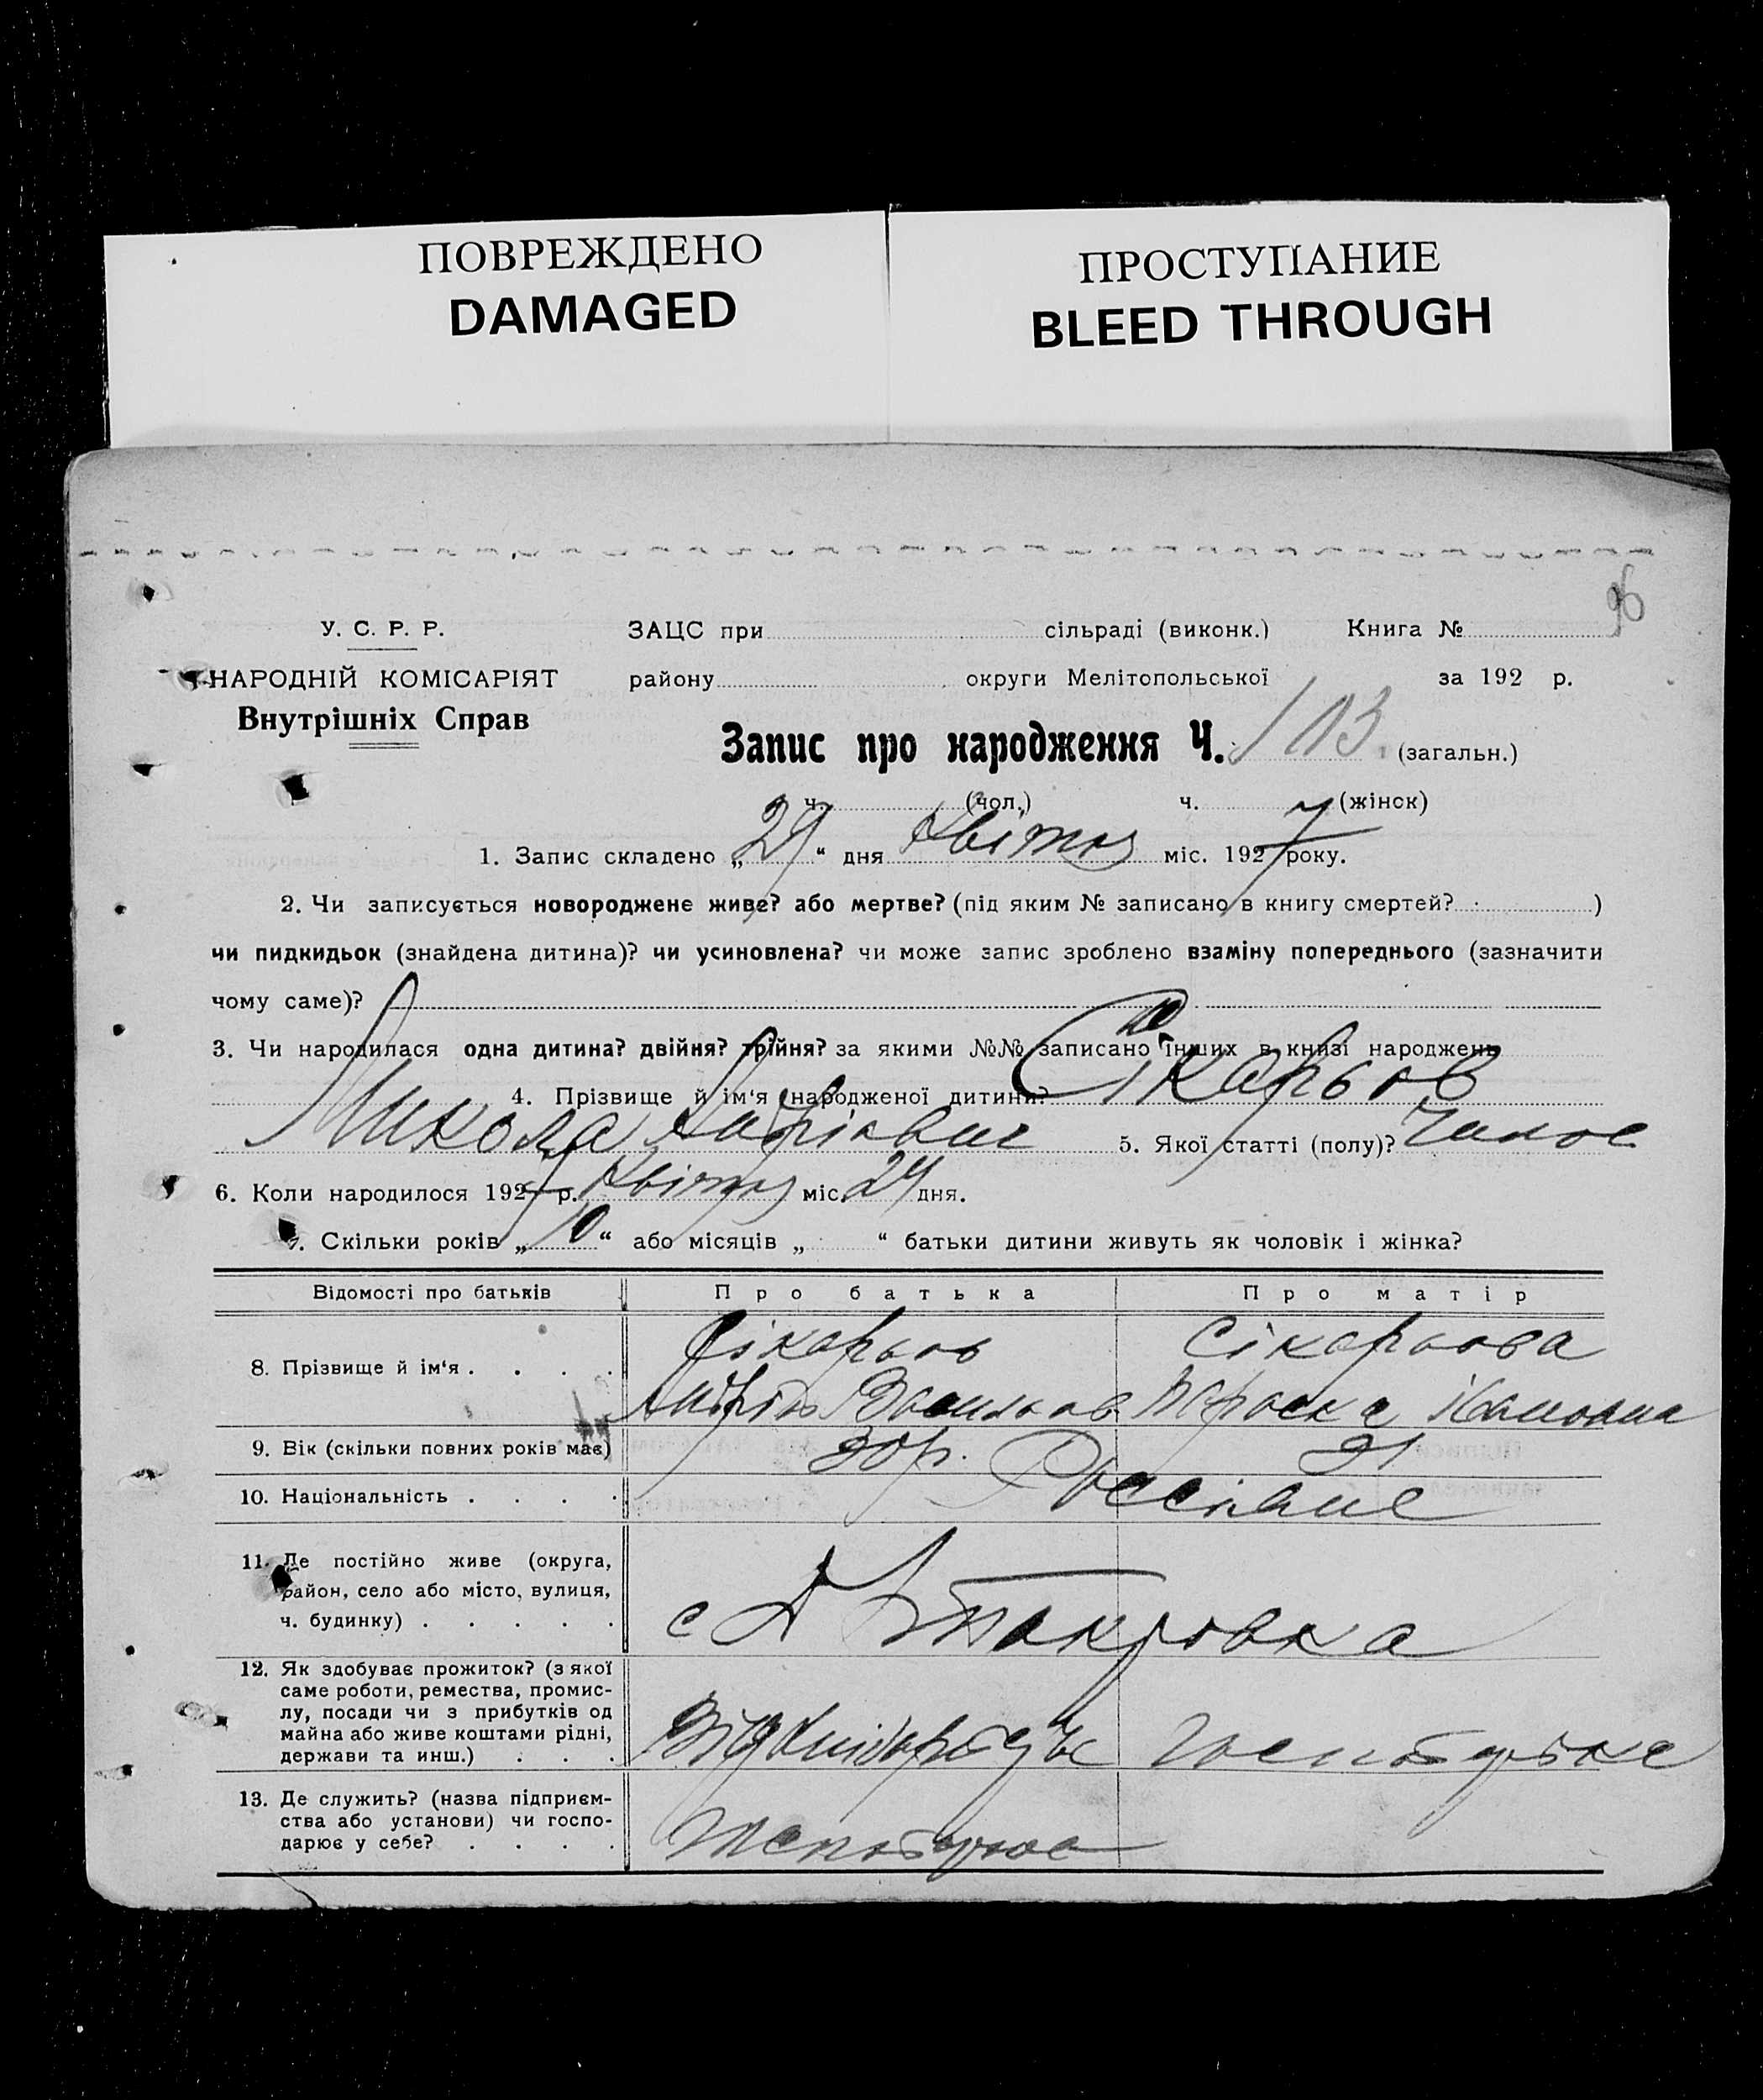 ПОВРЕЖДЕНО
DAMAGED
ПРОСТУПАНИЕ
BLEED THROUGH
96
У. С. Р. Р.
НАРОДНІЙ КОМІСАРІЯТ
Внутрішніх Справ
ЗАЦС при сільраді (виконк.) Книга №
району округи Мелітопольської за 192 р.
Запис про народження Ч. 103 (загальн.)
ч. (чол.) ч. (жінок)
1. Запис складено „29“ дня Квітня міс. 1927 року.
2. Чи записується новороджене живе? або мертве? (під яким № записано в книгу смертей? )
чи пидкидьок (знайдена дитина)? чи усиновлена? чи може запис зроблено взаміну попереднього (зазначити
чому саме)?
3. Чи народилася одна дитина? двійня? трійня? за якими №№ записано інших в книзі народжень
4. Прізвище й ім‘я народженої дитини? Сікарьов
Микола Андріович 5. Якої статті (полу)?
6. Коли народилося 1927 р. Квітня міс. 24 дня.
7. Скільки років „10“ або місяців „ “ батьки дитини живуть як чоловік і жінка?
Відомості про батьків Про батька Про матір
8. Прізвище й ім‘я . . . . Сікарьов Сікарьова
Андрій Васильов
9. Вік (скільки повних років має) 30 р. 31
10. Національність . . . .
11. Де постійно живе (округа,
район, село або місто, вулиця,
ч. будинку) . . . . .
с
12. Як здобуває прожиток? (з якої
саме роботи, ремества, промис-
лу, посади чи з прибутків од
майна або живе коштами рідні,
держави та инш.) . . .
13. Де служить? (назва підприєм-
ства або установи) чи госпо-
дарює у себе? . . . .